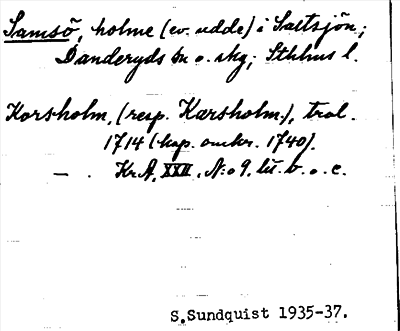 Samsö, holme (ev. udde) i Saltsjön;
Danderyds sn o. skg; Sthlms l.
Korsholm, (resp. Karsholm), trol.
1714 (kop. omkr. 1740).
— . Kr.A, XXII, N:o 9, lit. b. o. c.
S.Sundquist 1935-37.